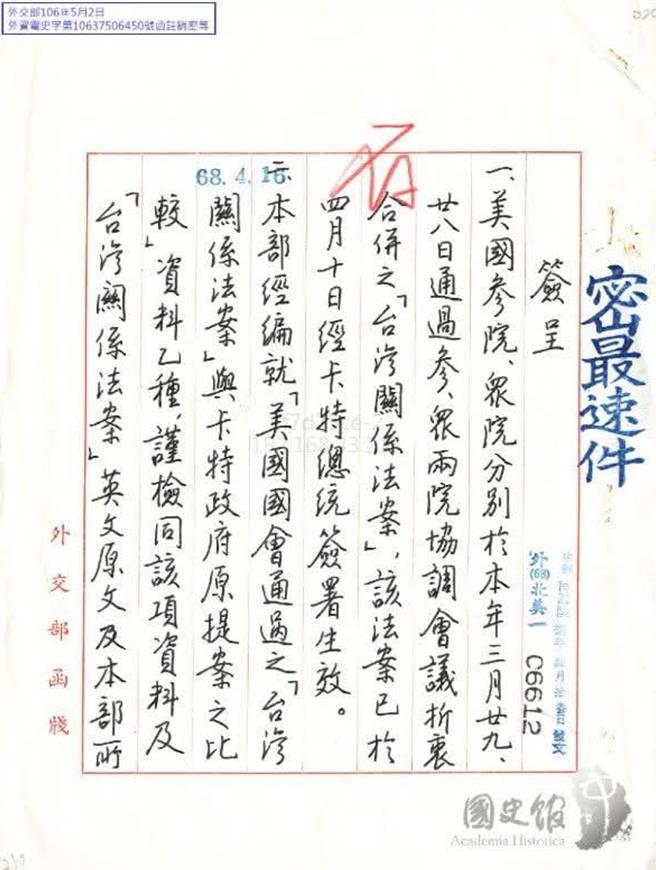 外交部106年5月2日
外資電史字第10637506450號函註銷密等
密最速件
外(68)北美一 06612
68.4.16
簽呈
一、美國參院、眾院分別於本年三月廿九、
廿八日通過參、眾兩院協調會議折衷
合併之「台灣關係法案」,該法案已於
四月十日經卡特總統簽署生效。
二、本部經編就「美國國會通過之「台灣
關係法案」與卡特政府原提案之比
較」資料乙種,謹檢同該項資料及
「台灣關係法案」英文原文及本部所
外交部函牋
國史館
Academia Historica